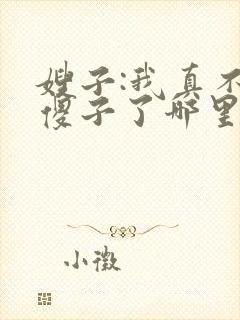 嫂子:我真不
傻子了哪里
小微